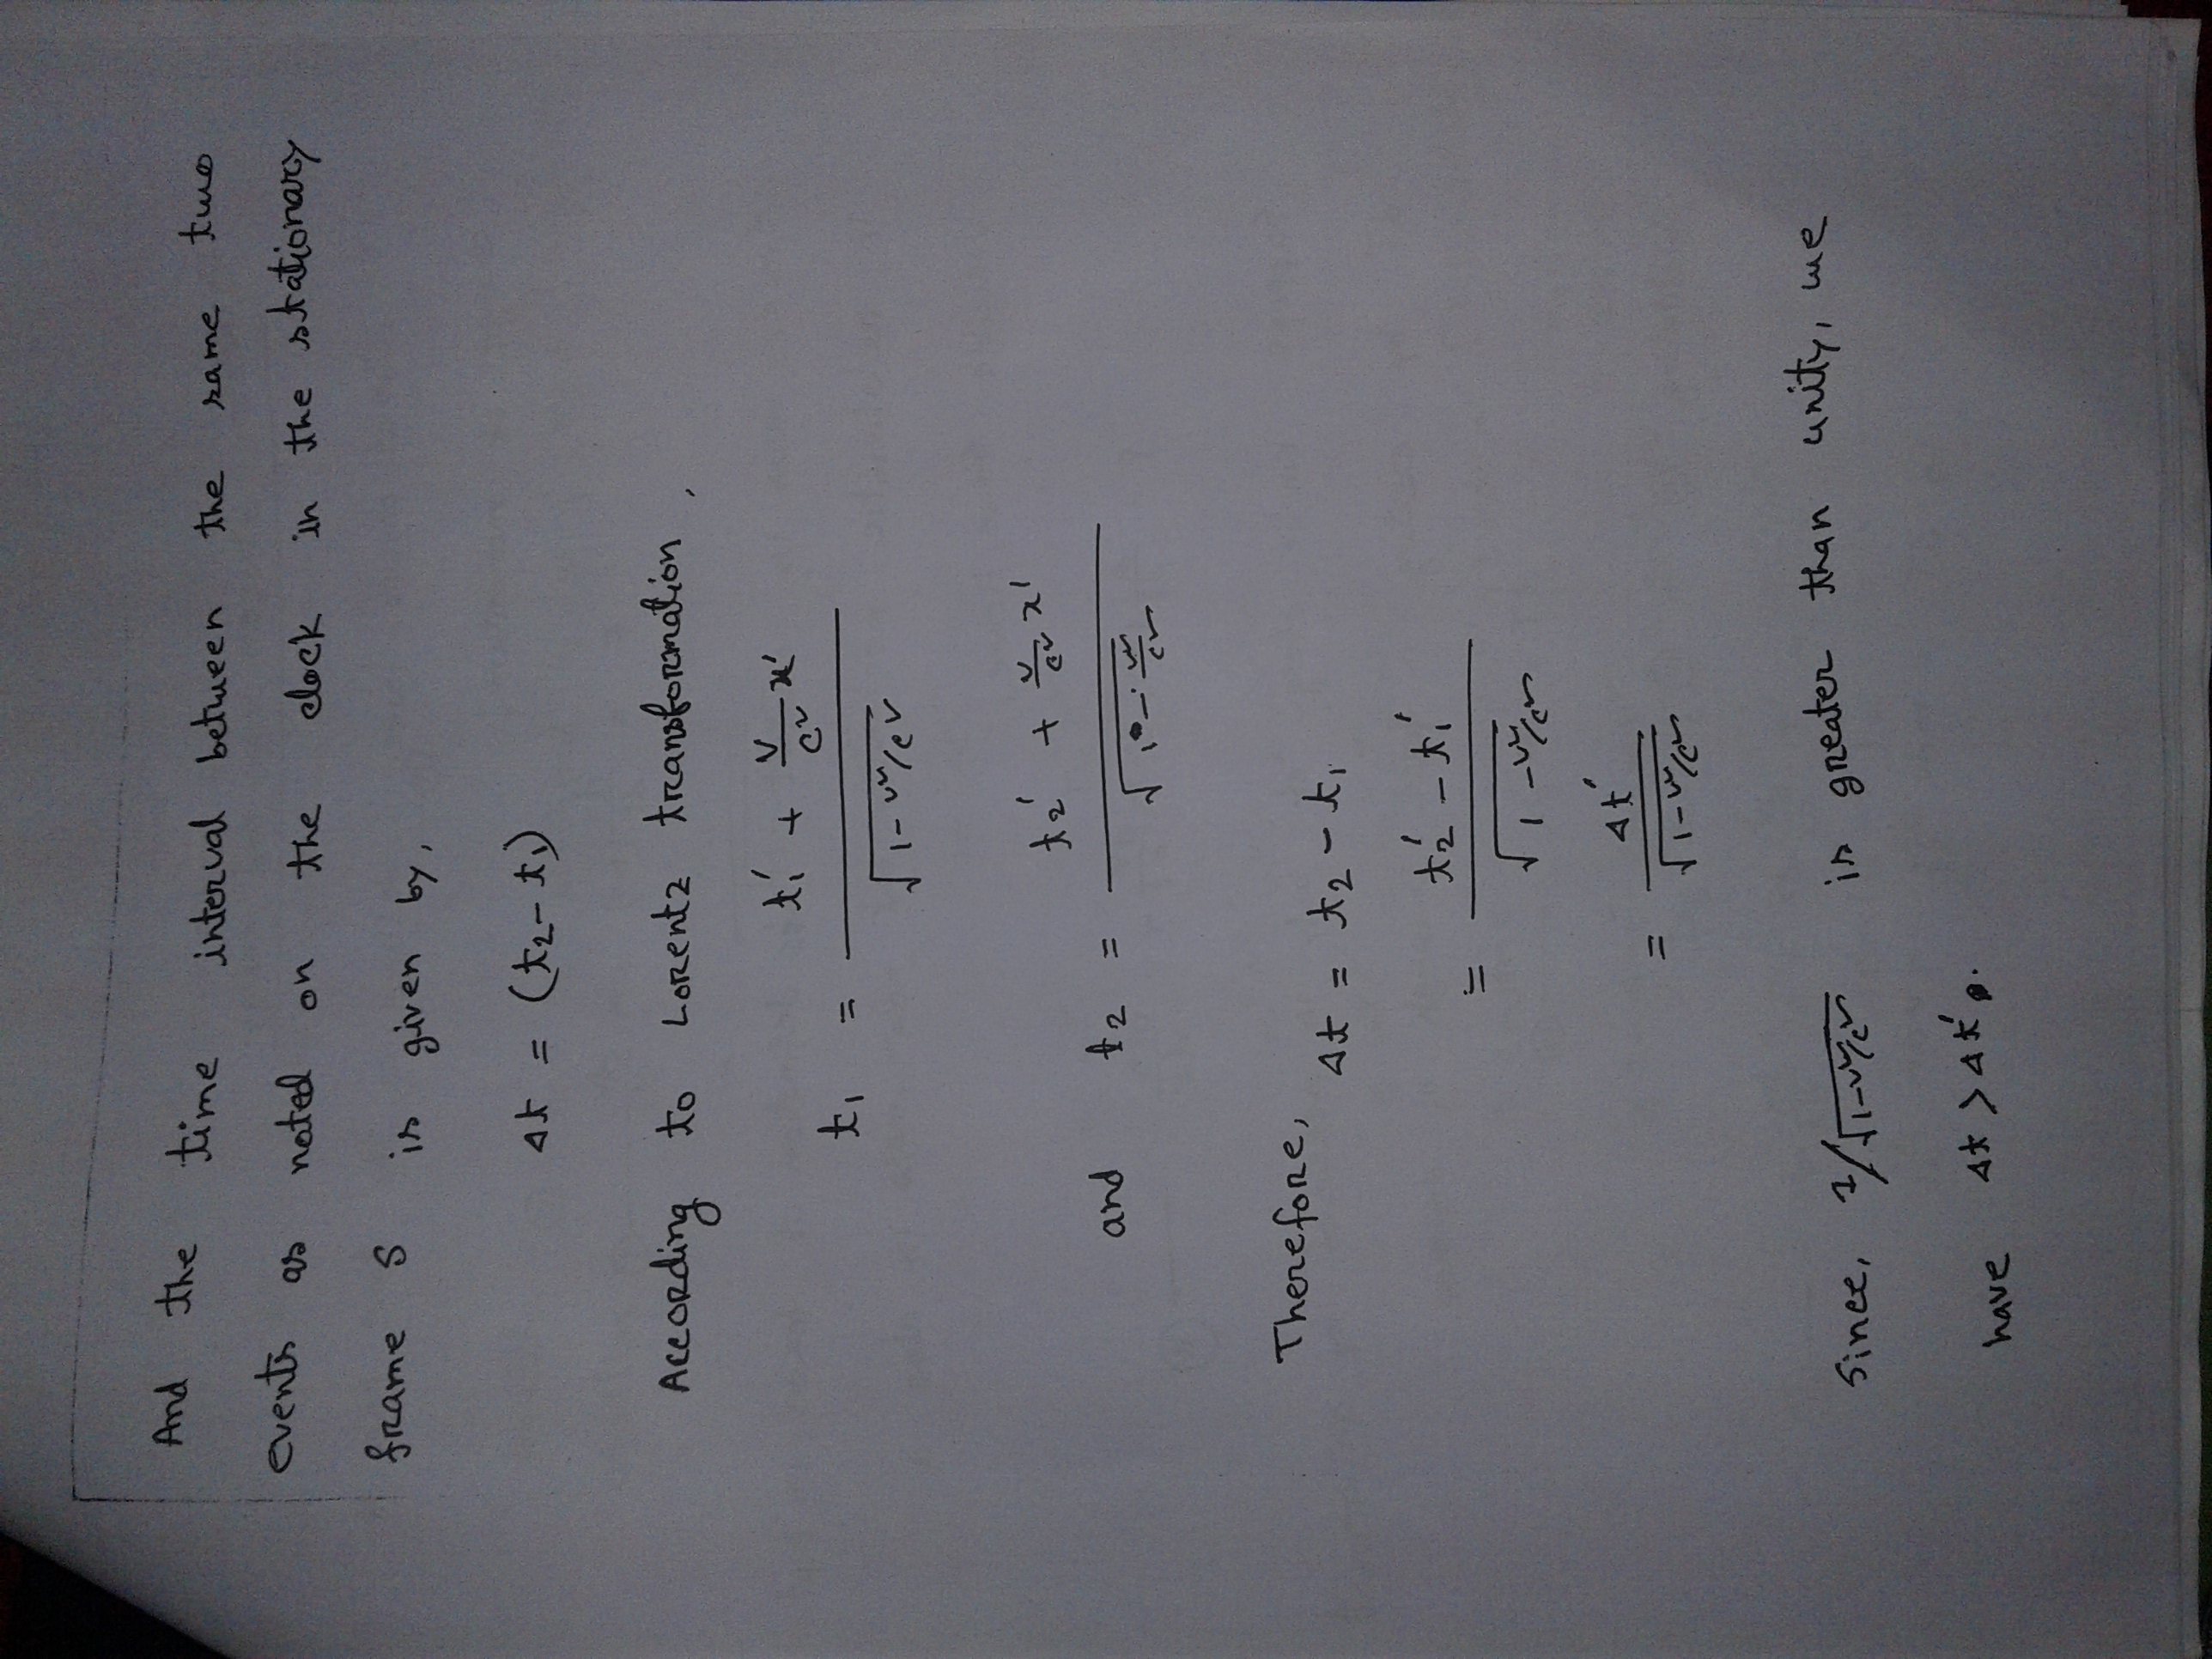 And the time interval between the same two
events as noted on the clock in the stationary
frame S is given by,
Δt = (t₂ - t₁)
According to Lorentz transformation,
t₁ = (t₁′ + (v/c²)x′) / √(1 - v²/c²)
and t₂ = (t₂′ + (v/c²)x′) / √(1 - v²/c²)
Therefore,
Δt = t₂ - t₁
= (t₂′ - t₁′) / √(1 - v²/c²)
= Δt′ / √(1 - v²/c²)
Since, 1/√(1 - v²/c²) is greater than unity, we
have Δt > Δt′.